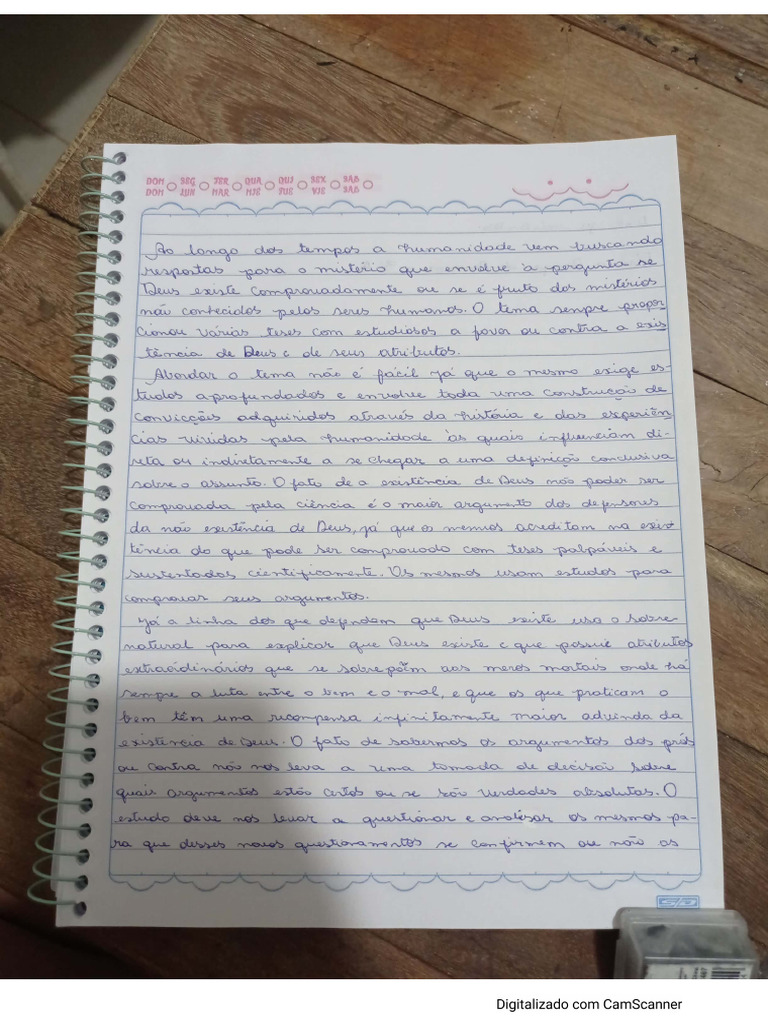 DOM SEG TER QUA QUI SEX SAB
DOM LUN MAR MIE JUE VIE SAB
Ao longo dos tempos a humanidade vem buscando
respostas para o mistério que envolve à pergunta se
Deus existe comprovadamente ou se é fruto dos mistérios
não conhecidos pelos seres humanos. O tema sempre propor
cionou várias teses com estudiosos a favor ou contra a exis
tência de Deus e de seus atributos.
Abordar o tema não é fácil já que o mesmo exige es-
tudos aprofundados e envolve toda uma construção de
convicções adquiridos através da história e das experiên
cias vividas pela humanidade às quais influenciam di-
reta ou indiretamente a se chegar a uma definição conclusiva
sobre o assunto. O fato de a existência de Deus não poder ser
comprovada pela ciência é o maior argumento dos defensores
da não existência de Deus, já que os mesmos acreditam na exis
tência do que pode ser comprovado com teses palpáveis e
sustentados cientificamente. Os mesmos usam estudos para
comprovar seus argumentos.
Já a linha dos que defendam que Deus existe usa o sobre
natural para explicar que Deus existe e que possui atributos
extraordinários que se sobrepõem aos meros mortais onde há
sempre a luta entre o bem e o mal, e que os que praticam o
bem têm uma recompensa infinitamente maior advinda da
existência de Deus. O fato de sabermos os argumentos dos prós
ou contra não nos leva a uma tomada de decisão sobre
quais argumentos estão certos ou se são verdades absolutas. O
estudo deve nos levar a questionar e analisar os mesmos pa-
ra que desses novos questionamentos se confirmem ou não as
Digitalizado com CamScanner